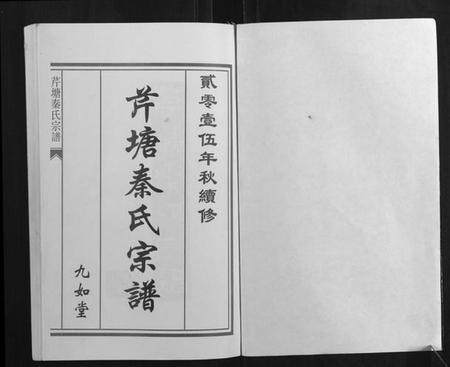 貳零壹伍年秋續修
芹塘秦氏宗譜
九如堂
芹塘秦氏宗譜